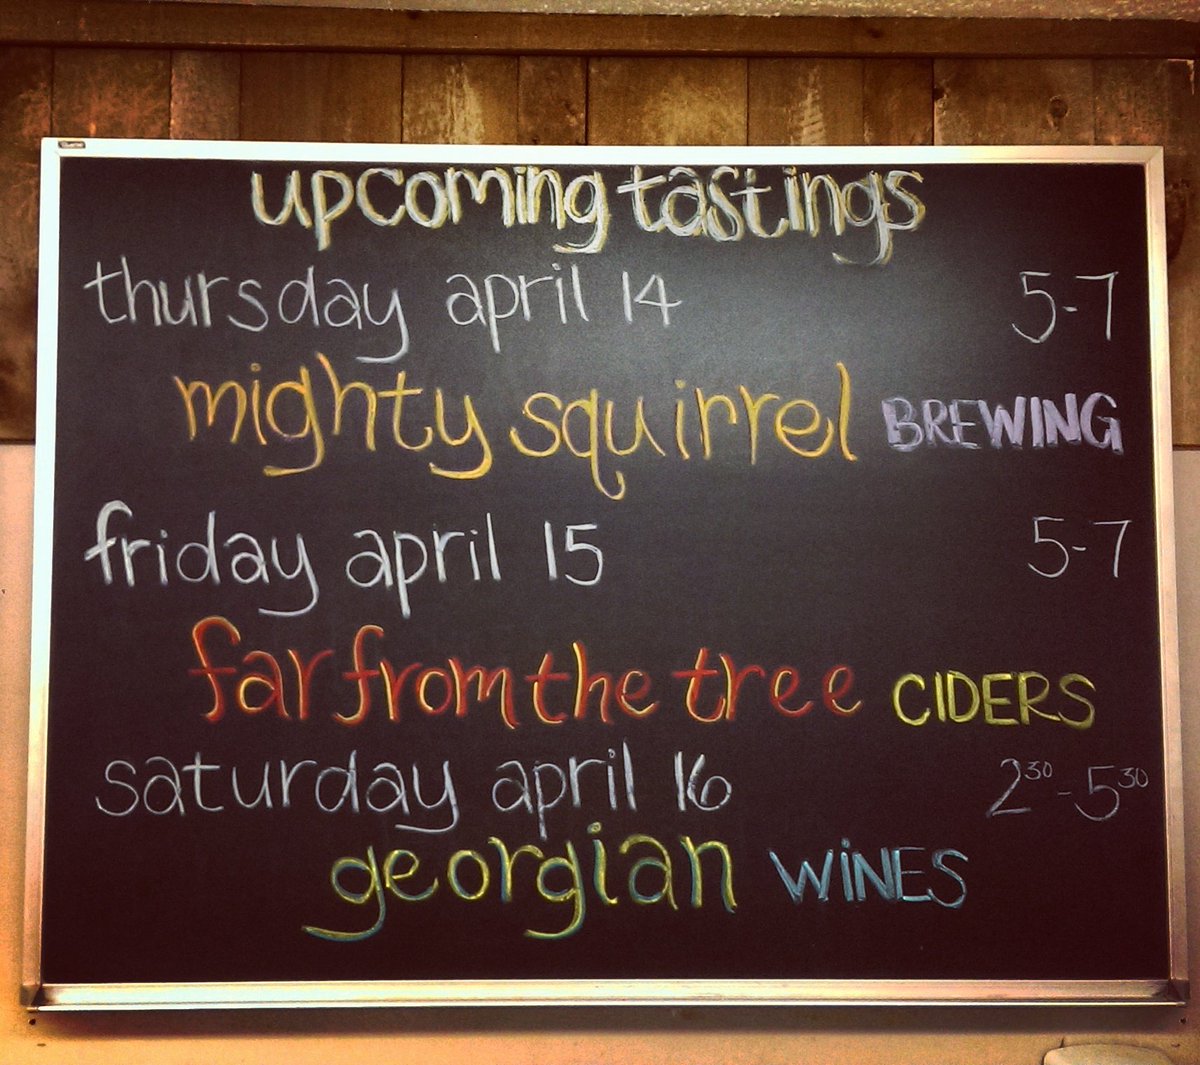 upcoming tastings
thursday april 14 5-7
mighty squirrel BREWING
friday april 15 5-7
far from the tree CIDERS
saturday april 16 2³⁰-5³⁰
georgian WINES